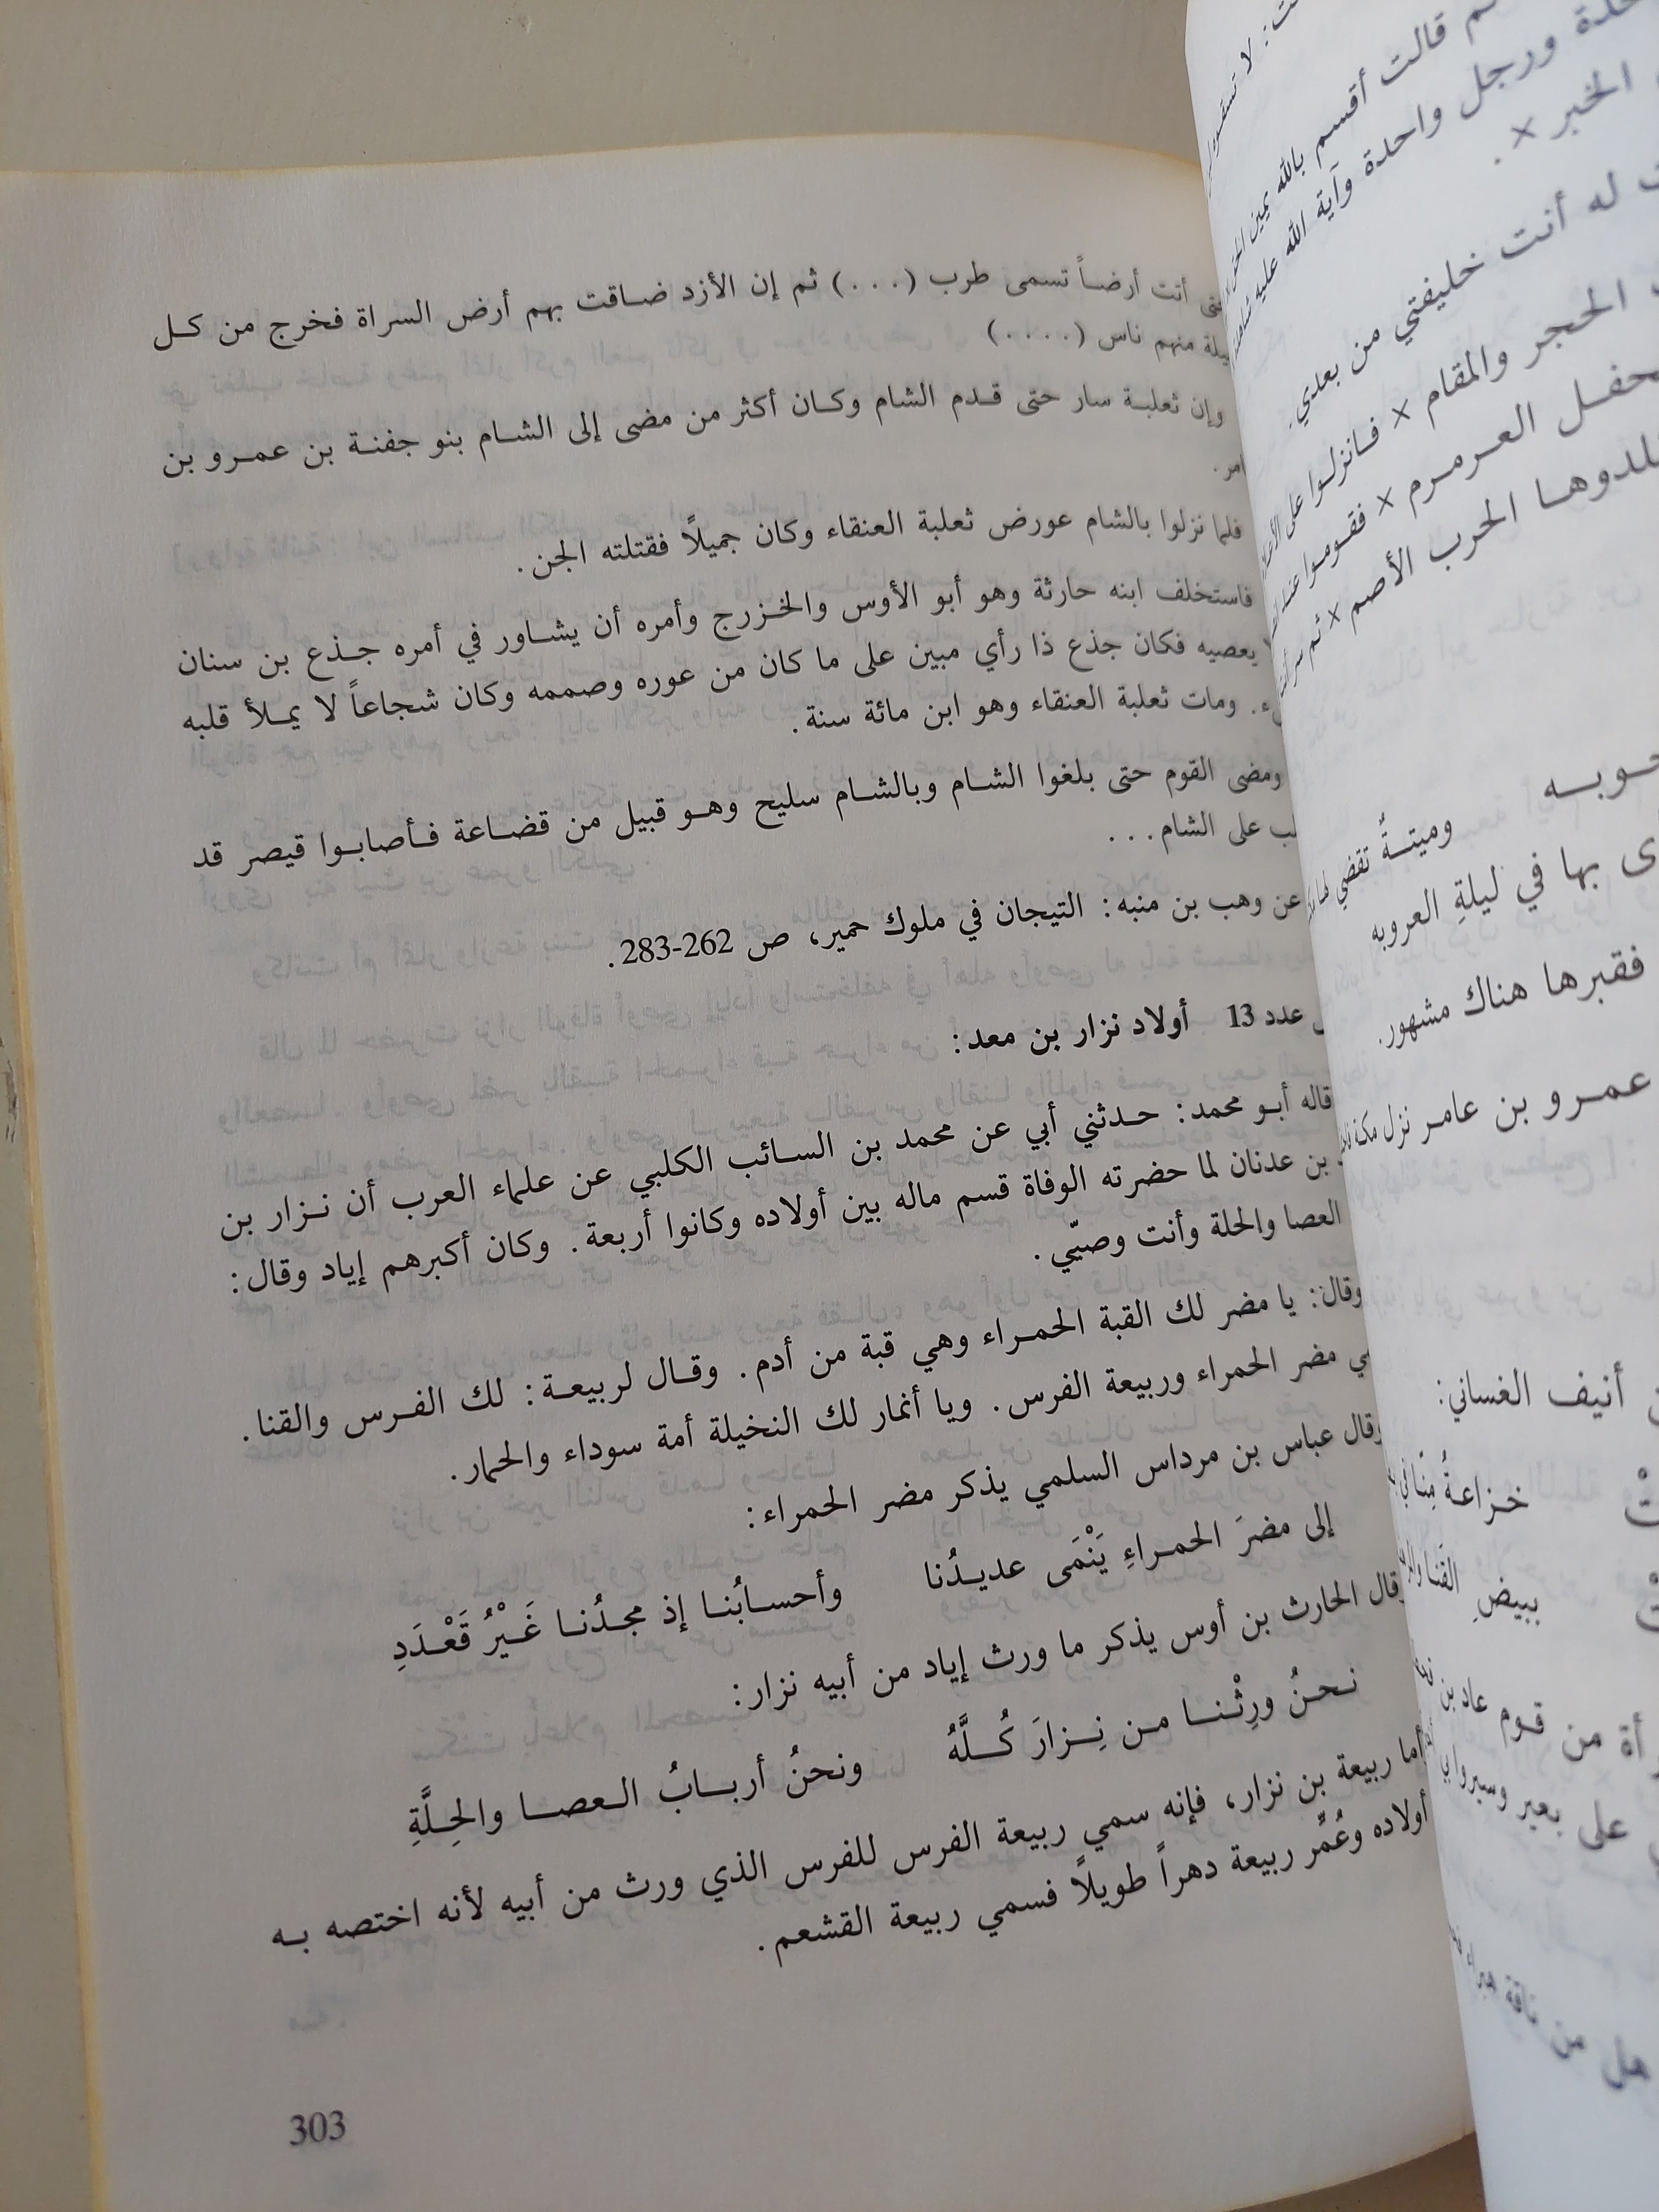 أتت أرضاً تسمى طرب (. . .) ثم إن الأزد ضاقت بهم أرض السراة فخرج من كل
منهم ناس (. . . .)
وإن ثعلبة سار حتى قدم الشام وكان أكثر من مضى إلى الشام بنو جفنة بن عمرو بن
فلما نزلوا بالشام عورض ثعلبة العنقاء وكان جميلاً فقتلته الجن.
فاستخلف ابنه حارثة وهو أبو الأوس والخزرج وأمره أن يشاور في أمره جذع بن سنان
يعصيه فكان جذع ذا رأي مبين على ما كان من عوره وصممه وكان شجاعاً لا يملأ قلبه
ومات ثعلبة العنقاء وهو ابن مائة سنة.
ومضى القوم حتى بلغوا الشام وبالشام سليح وهو قبيل من قضاعة فأصابوا قيصر قد
على الشام . . .
عن وهب بن منبه: التيجان في ملوك حمير، ص 262-283.
عدد 13 أولاد نزار بن معد:
قاله أبو محمد: حدثني أبي عن محمد بن السائب الكلبي عن علماء العرب أن نزار بن
بن عدنان لما حضرته الوفاة قسم ماله بين أولاده وكانوا أربعة. وكان أكبرهم إياد وقال:
العصا والحلة وأنت وصيّي.
وقال: يا مضر لك القبة الحمراء وهي قبة من أدم. وقال لربيعة: لك الفرس والقنا.
مضر الحمراء وربيعة الفرس. ويا أنمار لك النخيلة أمة سوداء والحمار.
وقال عباس بن مرداس السلمي يذكر مضر الحمراء:
إلى مضرَ الحمراءِ يَنْمَى عديدُنا وأحسابُنا إذ مجدُنا غَيْرُ قَعْدَدِ
وقال الحارث بن أوس يذكر ما ورث إياد من أبيه نزار:
نحنُ ورِثْنا من نِزارَ كُلَّهُ ونحنُ أربابُ العصا والحِلَّةِ
أما ربيعة بن نزار، فإنه سمي ربيعة الفرس للفرس الذي ورث من أبيه لأنه اختصه به
أولاده وعُمِّر ربيعة دهراً طويلاً فسمي ربيعة القشعم.
303
قالت أقسم بالله يمين
ورجل واحدة وآية الله عليه
الخبر ×.
له أنت خليفتي من بعدي.
الحجر والمقام × فانزلوا على
العرمرم × فقوموا
الحرب الأصم × ثم
وميتةٌ تقضي
بها في ليلةِ العروبه
فقبرها هناك مشهور.
عمرو بن عامر نزل مكة
أنيف الغساني:
خزاعةُ مِنّا
ببيضِ القَنا
من قوم عاد بن
على بعير وسيروا
من ناقة